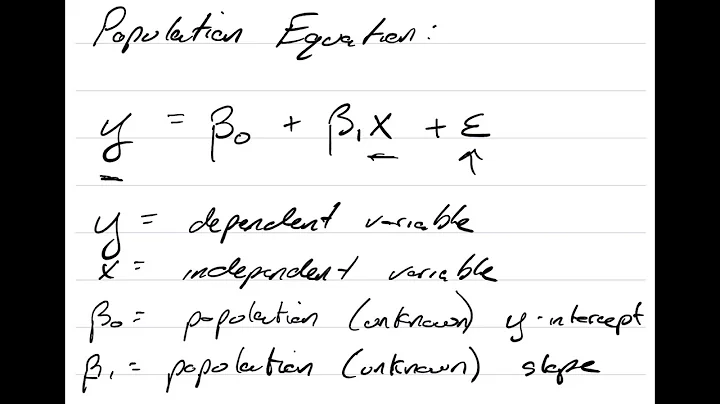 Population Equation:
y = β₀ + β₁x + ε
y = dependent variable
x = independent variable
β₀ = population (unknown) y-intercept
β₁ = population (unknown) slope